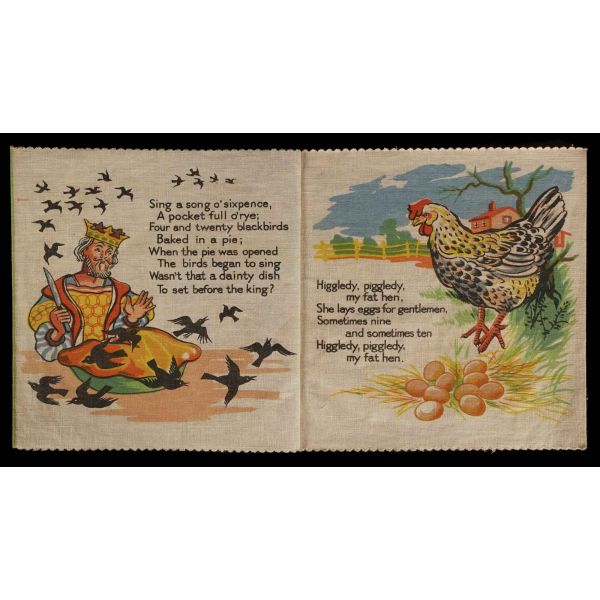 Sing a song o' sixpence,
A pocket full o'rye;
Four and twenty blackbirds
Baked in a pie;
When the pie was opened
The birds began to sing
Wasn't that a dainty dish
To set before the king?
Higgledy, piggledy,
my fat hen,
She lays eggs for gentlemen,
Sometimes nine
and sometimes ten
Higgledy, piggledy,
my fat hen.